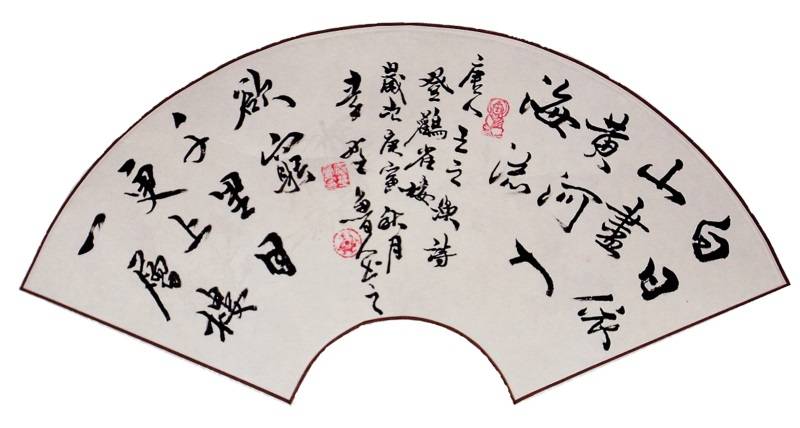 白日依
山盡
黃河入
海流
唐人王之渙詩
登鸛雀樓
歲次庚寅秋月
欲窮目
千里
更上
一層樓